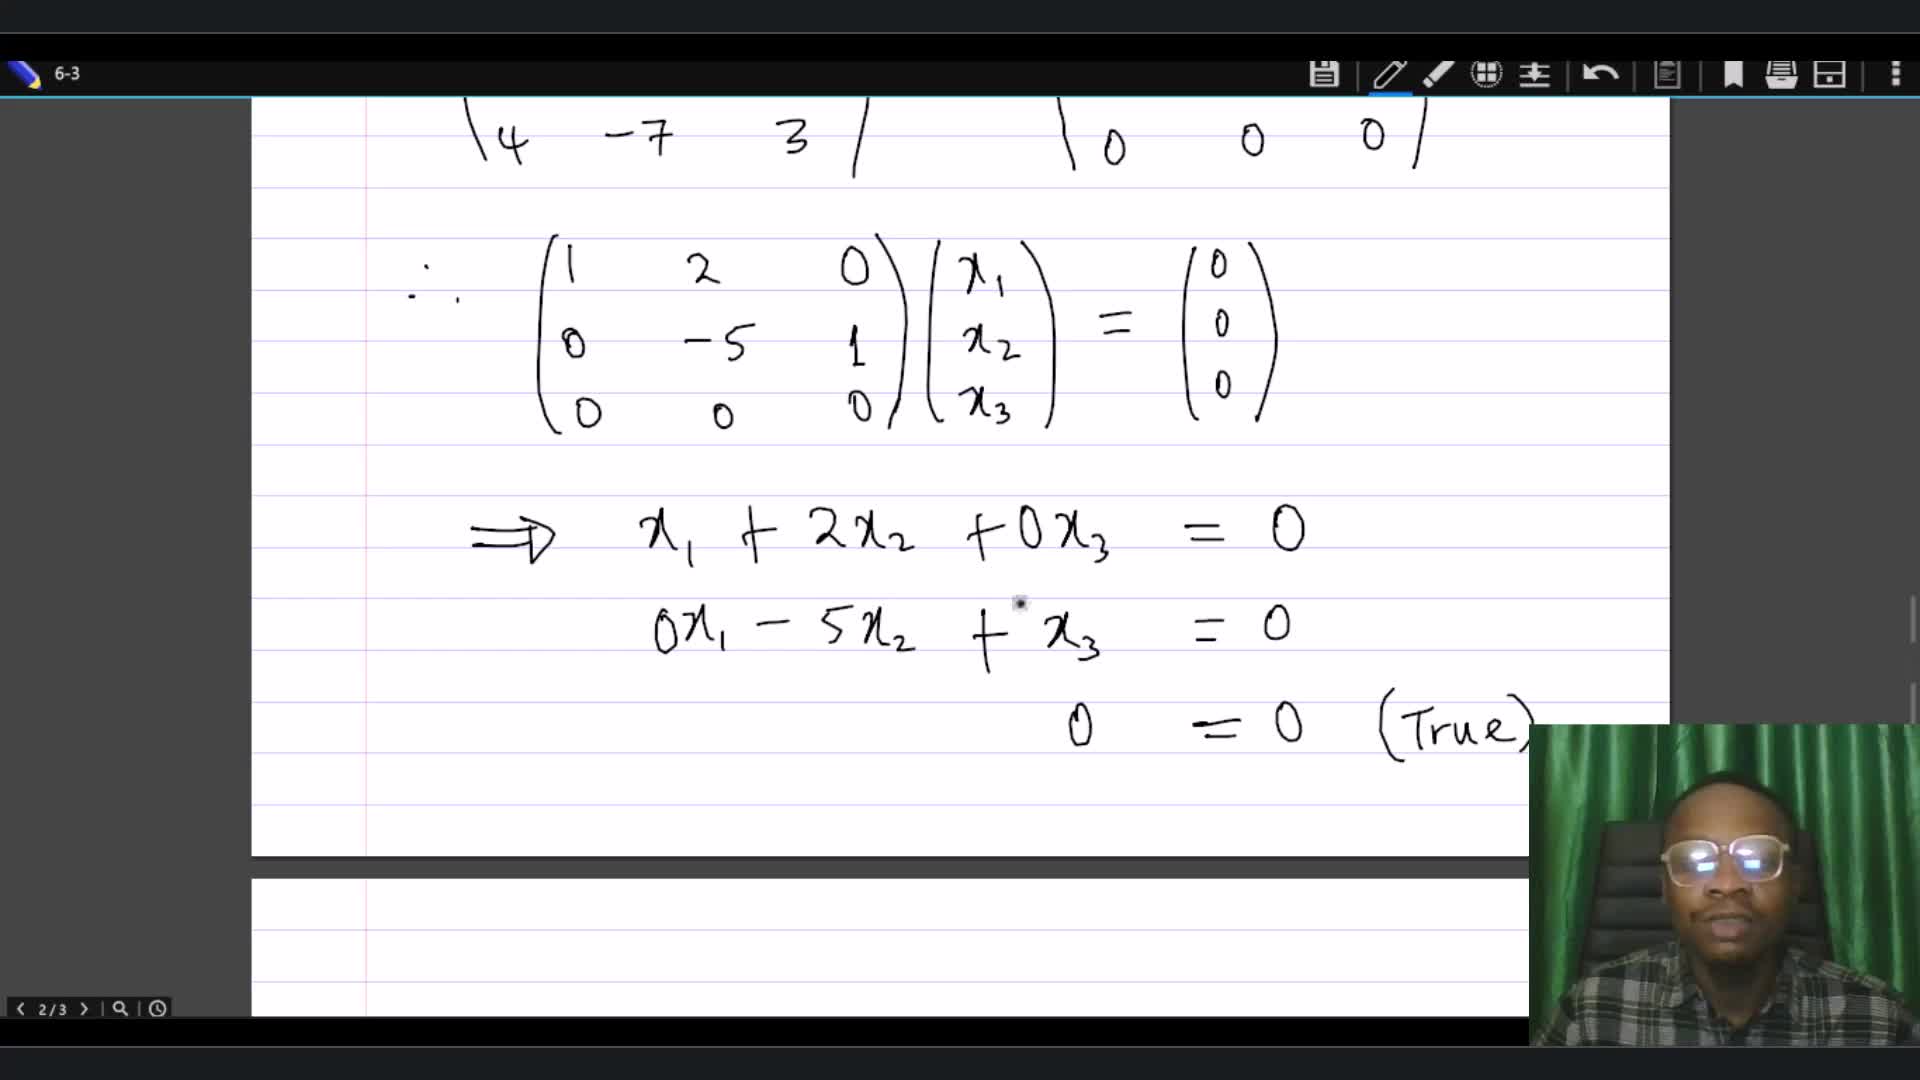 6-3
4 -7 3 0 0 0
∴ (1 2 0) (x₁) = (0)
(0 -5 1) (x₂) (0)
(0 0 0) (x₃) (0)
⇒ x₁ + 2x₂ + 0x₃ = 0
0x₁ - 5x₂ + x₃ = 0
0 = 0 (True)
2/3